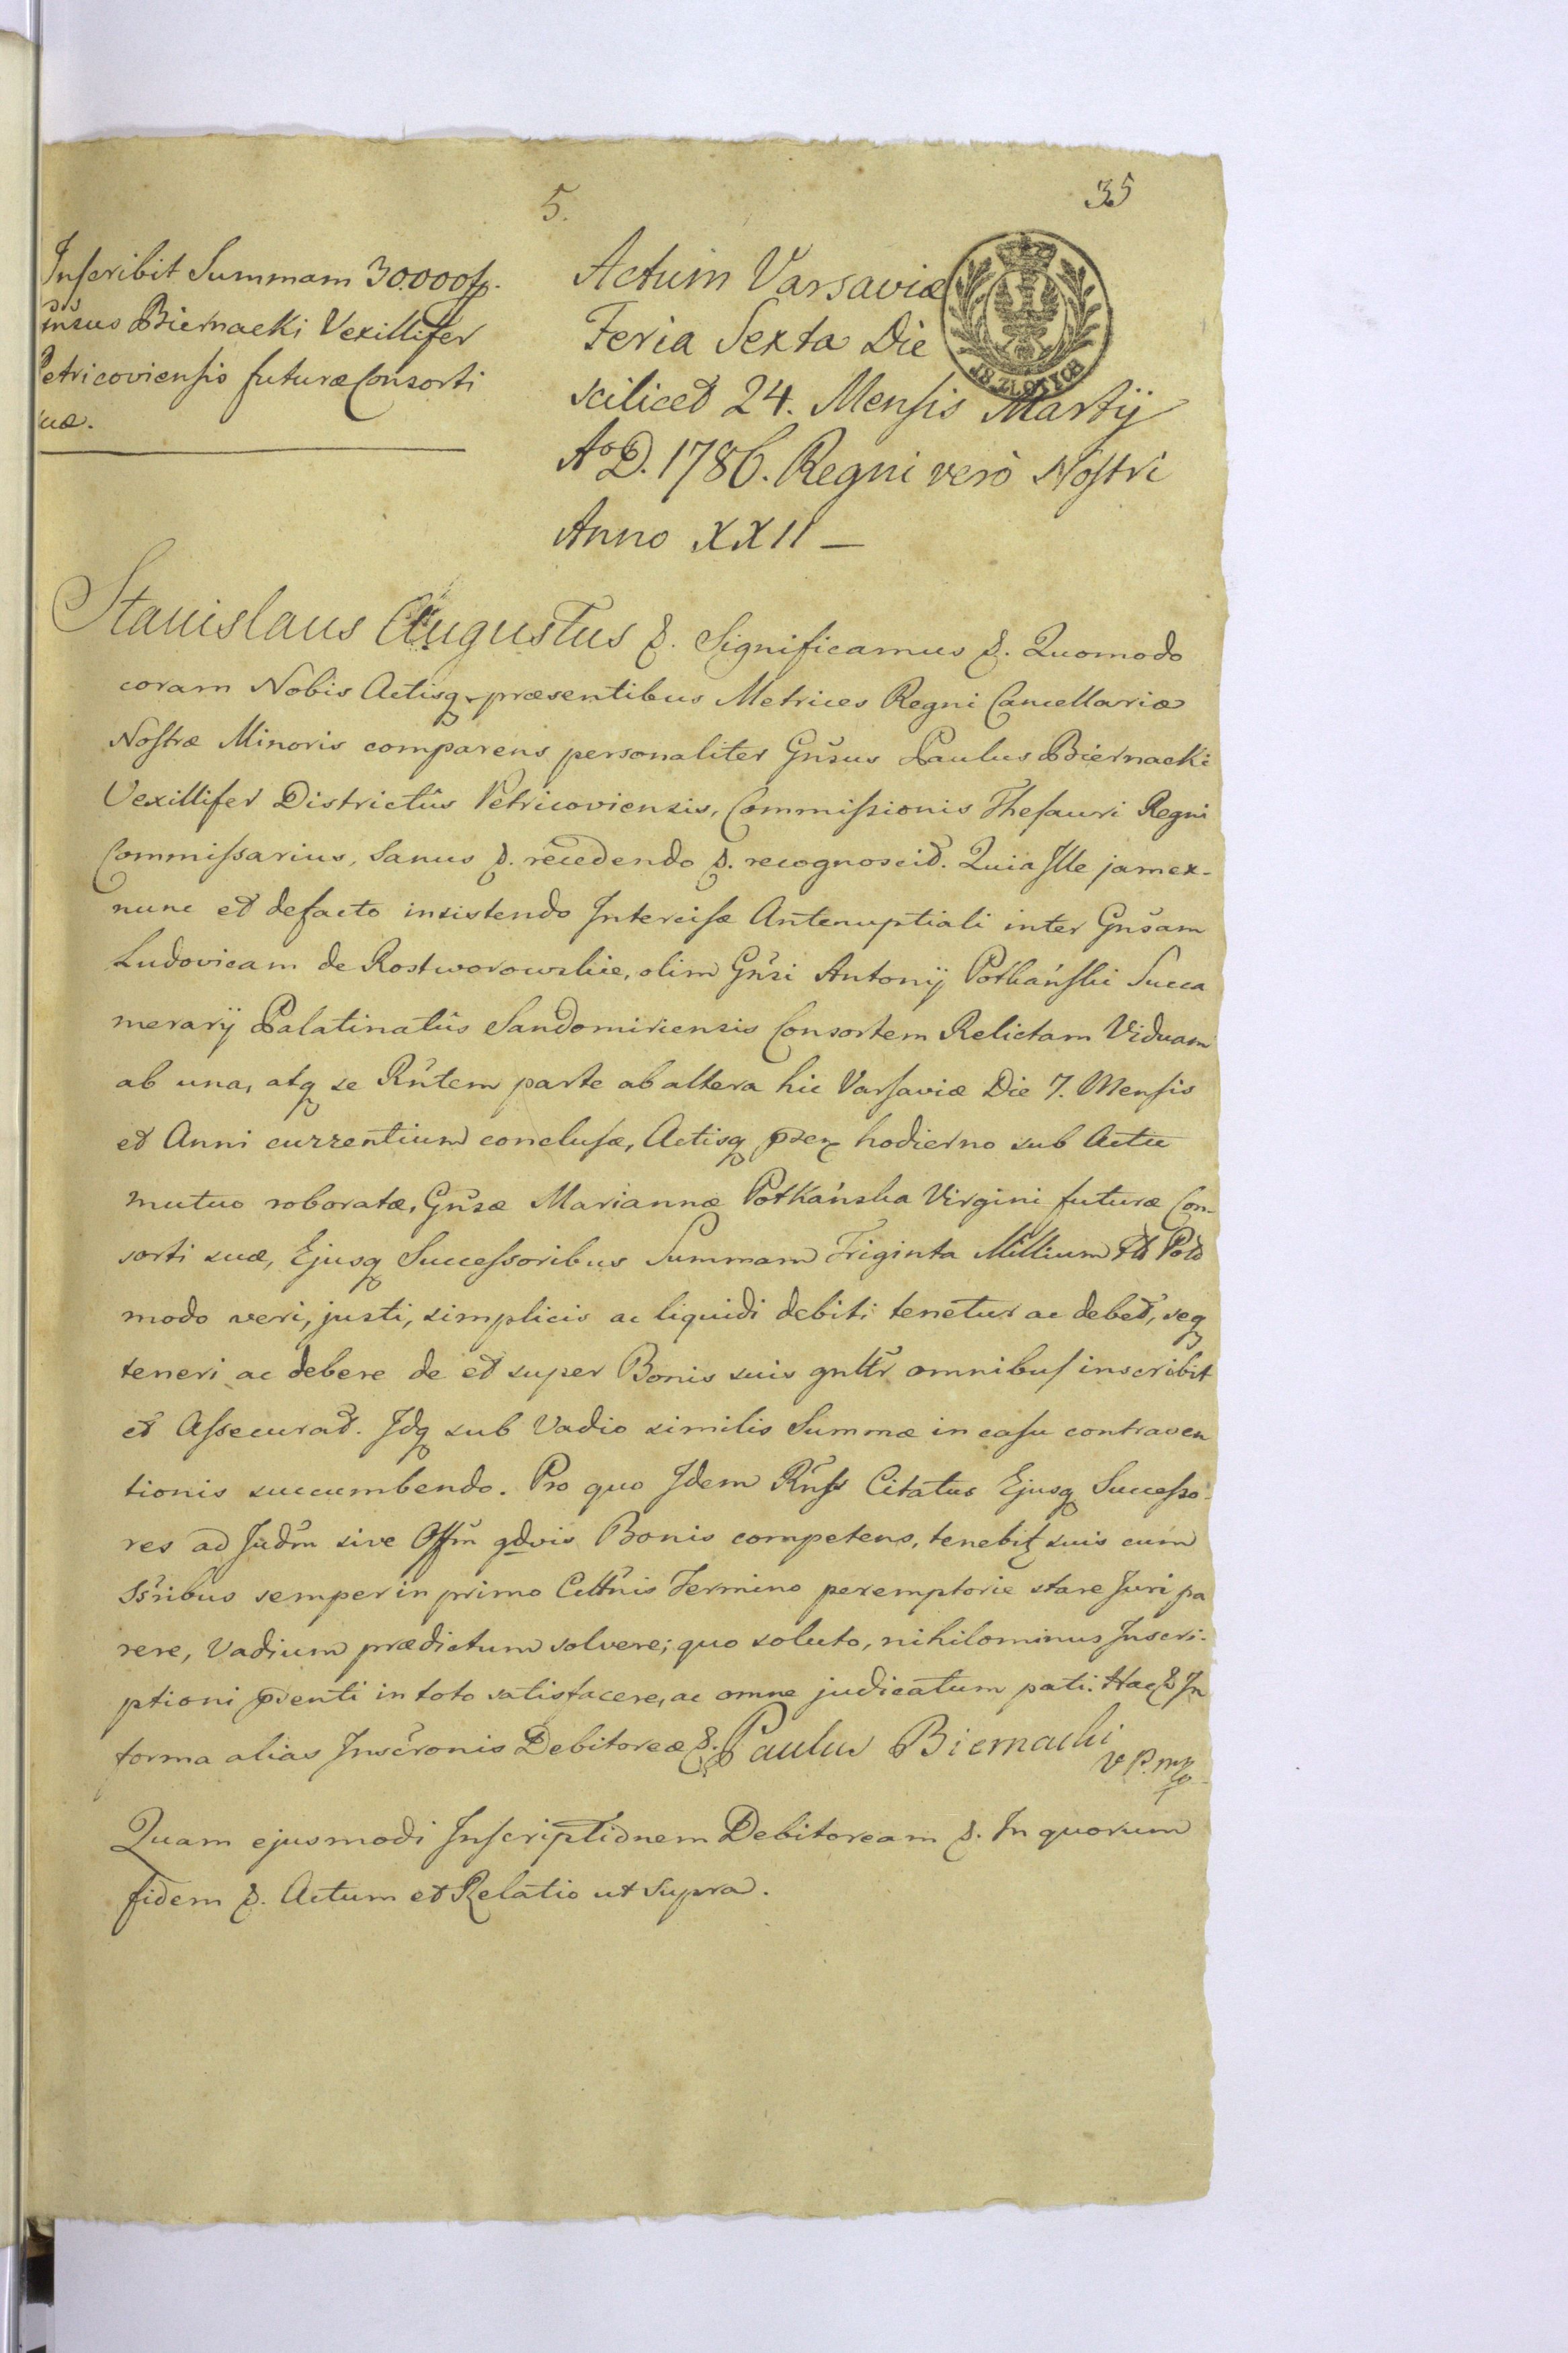 5.
35
Inscribit Summam 30.000 fp.
Gnsus Biernacki Vexillifer
Petricoviensis futuræ Consorti
suæ.
Actum Varsaviæ
Feria Sexta Die
scilicet 24. Mensis Martij
Ao D. 1786. Regni verò Nostri
Anno XXII —
Stanislaus Augustus &. Significamus &. Quomodo
coram Nobis Actisq præsentibus Metrices Regni Cancellariæ
Nostræ Minoris comparens personaliter Gnsus Paulus Biernacki
Vexillifer Districtûs Petricoviensis, Commissionis Thesauri Regni
Commissarius, Sanus &. recedendo &. recognoscit. Quia Ille jam ex-
nunc et defacto insistendo Intercisæ Antenuptiali inter Gnsam
Ludovicam de Rostworowskie, olim Gnsi Antonij Potkański Succa
merarij Palatinatûs Sandomiriensis Consortem Relictam Viduam
ab una, atq se Rntem parte ab altera hic Varsaviæ Die 7. Mensis
et Anni currentium conclusæ, Actisq hodierno sub Actu
mutuo roboratæ, Gnsæ Mariannæ Potkańska Virgini futuræ Con-
sorti suæ, Ejusq Successoribus Summam Triginta Millium Fl Pol
modo veri, justi, simplicis ac liquidi debiti tenetur ac debet, seq
teneri ac debere de et super Bonis suis gnltr omnibus inscribit
et Assecurat. Idq sub Vadio similis Summæ in casu contraven
tionis succumbendo. Pro quo Idem Rnss Citatus Ejusq Successo-
res ad Judm sive Offm qdvis Bonis competens, tenebit suis cum
Ssribus semper in primo Cittnis Termino peremptorie stare Juri pa
rere, Vadium prædictum solvere; quo soluto, nihilominus Inscri-
ptioni psenti in toto satisfacere, ac omne judicatum pati. Hac & In
forma alias Inscronis Debitoreæ &. Paulus Biernacki
V P. mp
Quam ejusmodi Inscriptionem Debitoream &. In quorum
fidem &. Actum et Relatio ut Supra.